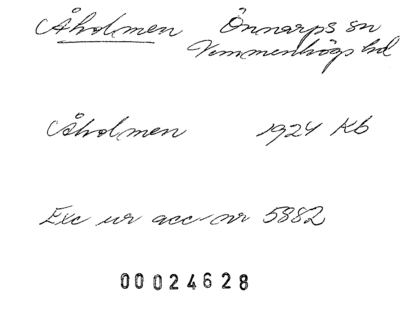 Åholmen Önnarps sn
Vemmenhögs hd
Åholmen 1924 Kb
Exc ur acc-nr 5882
00024628